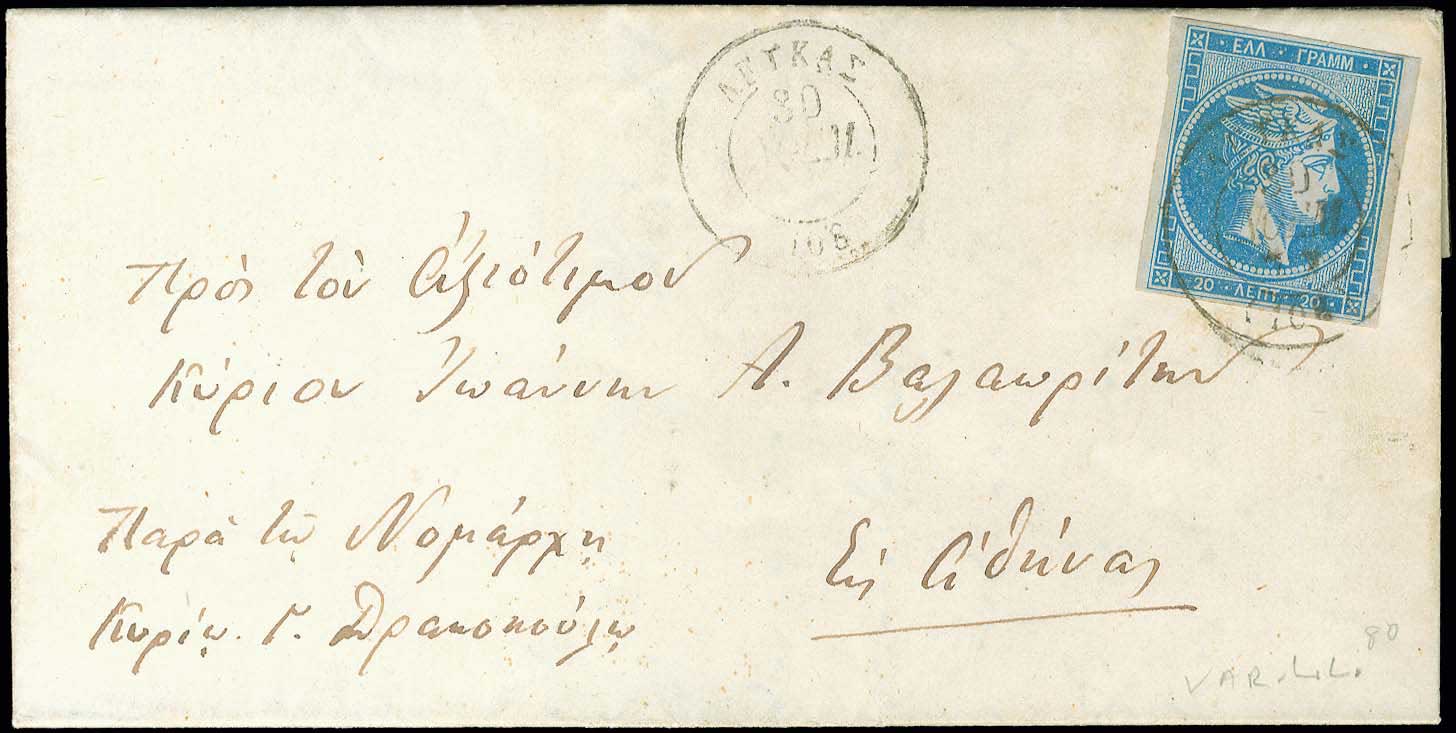 ΛΕΥΚΑΣ
30
108
ΕΛΛ ΓΡΑΜΜ
20 ΛΕΠΤ 20
30
108
Πρὸς τὸν Ἀξιότιμον
Κύριον Ἰωάννην Α. Βαλαωρίτην
Παρὰ τῷ Νομάρχῃ
Κυρίῳ. Γ. Δρακοπούλῳ
Εἰς Ἀθήνας
80
VAR.L.L.